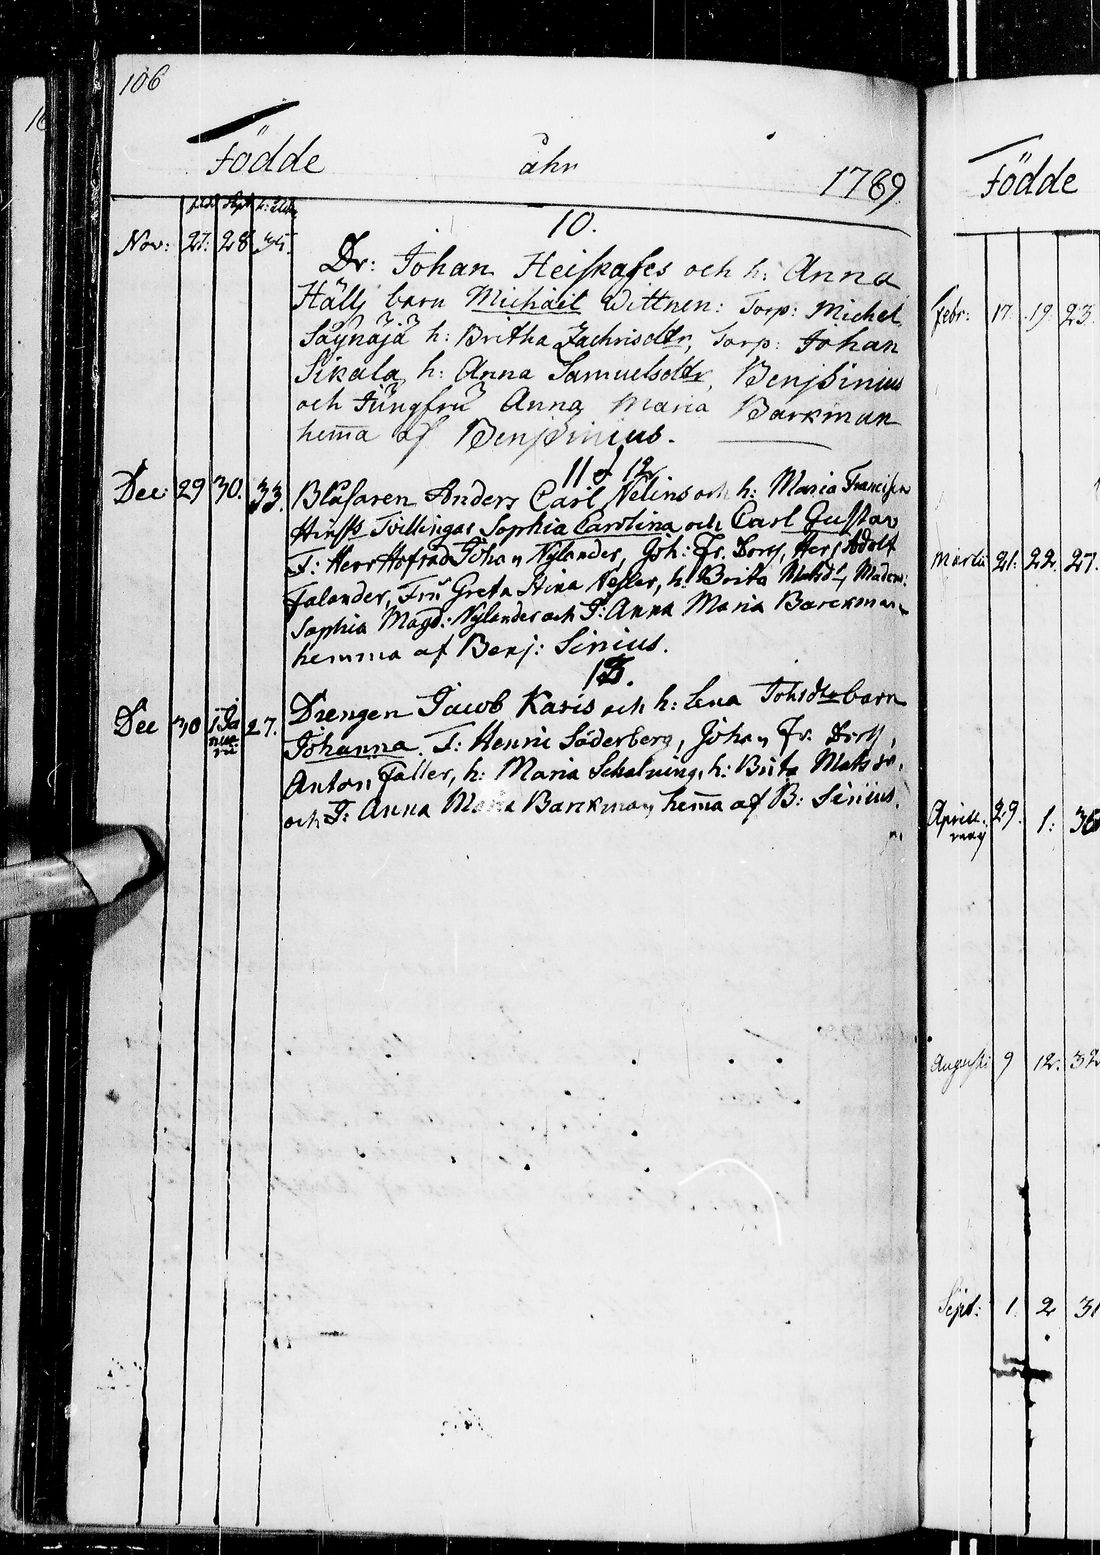 106
Födde åhr 1789
född döpt h: ålder
10.
Nov: 27. 28 34.
Dr: Johan Heiskases och h: Anna
Hälls barn Michaël Wittnen: Torp: Michel
Säynäjä h: Britha Zachrisdtr, Torp: Johan
Sikala, h: Anna Samuelsdtr, Benj Sinius
och Jungfru Anna Maria Barkman
hema af Benj Sinius.
11 o 12
Dec: 29 30. 33.
Blåsaren Anders Carl Nelins och h: Maria
Tvillingar Sophia Carolina och Carl Gustav
T: Herr Hofråd Johan Nylander, Joh: Fr. Herr Adolf
Falander, Fru Greta Stina h: Brita Matsdr, Madem:
Sophia Magd: Nylander och J: Anna Maria Barckman
hemma af Benj: Sinius.
13.
Dec 30 1 Januarii 27.
Drengen Jacob Karis och h: Lena Johsdtr barn
Johanna. T: Henric Söderberg, Johan Fr.
Anton Faller, h: Maria h: Brita Matsdr,
och J: Anna Maria Barckman hema af B: Sinius.
Födde
Febr: 17. 19. 23.
Martii 21. 22. 27.
Aprill. 29. 1. 36
may
Augusti 9 12. 32
Sept: 1. 2 31